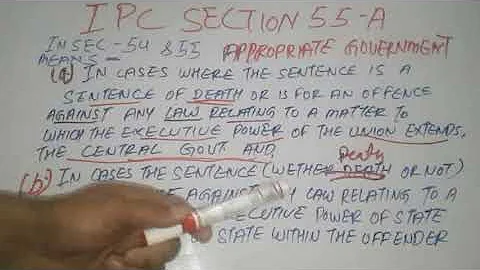 IPC SECTION 55-A
IN SEC-54 & 55 APPROPRIATE GOVERNMENT
MEANS -
(a) IN CASES WHERE THE SENTENCE IS A
SENTENCE OF DEATH OR IS FOR AN OFFENCE
AGAINST ANY LAW RELATING TO A MATTER TO
WHICH THE EXECUTIVE POWER OF THE UNION EXTENDS,
THE CENTRAL GOVT AND
Death
(b) IN CASES THE SENTENCE (WETHER DEATH OR NOT)
AGAINST LAW RELATING TO A
POWER OF STATE
STATE WITHIN THE OFFENDER